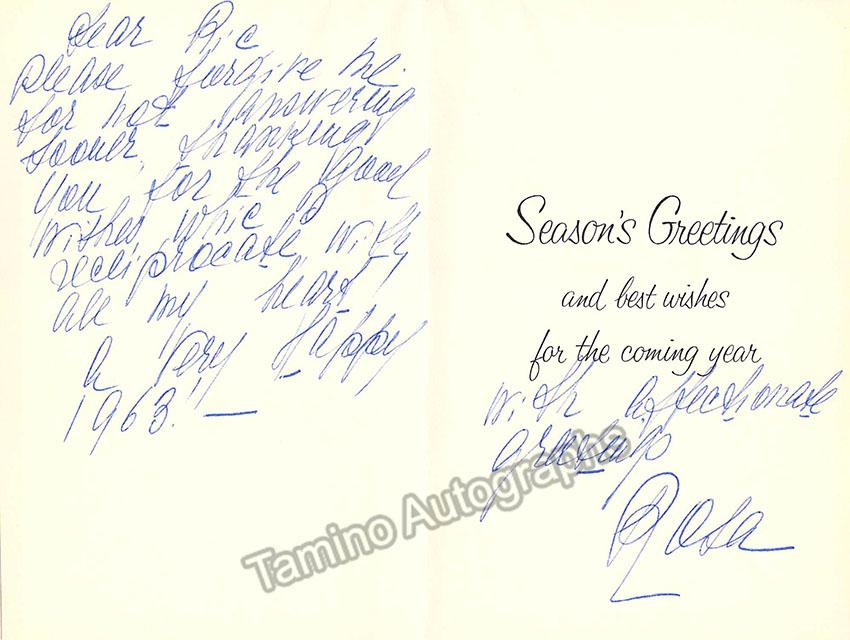 Dear Ric
please forgive me
for not answering
sooner, thanking
you for the good
wishes, whic I
reciprocate with
all my heart!
A Very Happy
1963! —
Season's Greetings
and best wishes
for the coming year
with affectionate
greetings
Rosa
Tamino Autographs